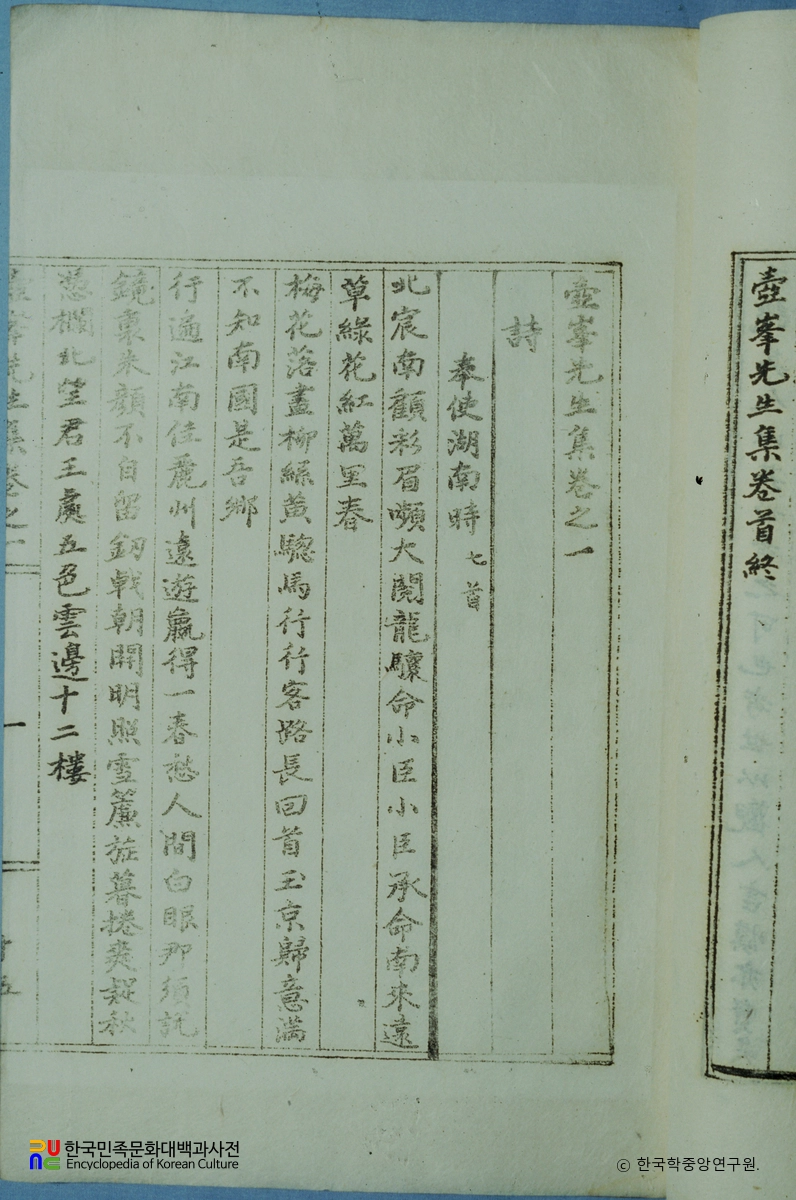 壺峯先生集卷首終
壺峯先生集卷之一
詩
奉使湖南時 七首
北宸南顧彩眉嚬大闢龍驤命小臣小臣承命南來遠
草綠花紅萬里春
梅花落盡柳絲黃驄馬行行客路長回首玉京歸意滿
不知南國是吾鄉
行遍江南佳麗州遠遊贏得一春愁人間白眼那須詫
鏡裏朱顏不自留釰戟朝開明照雪簾旌暮捲爽凝秋
憑欄北望君王處五色雲邊十二樓
壺峯先生集卷之一
一
한국민족문화대백과사전
Encyclopedia of Korean Culture
© 한국학중앙연구원.